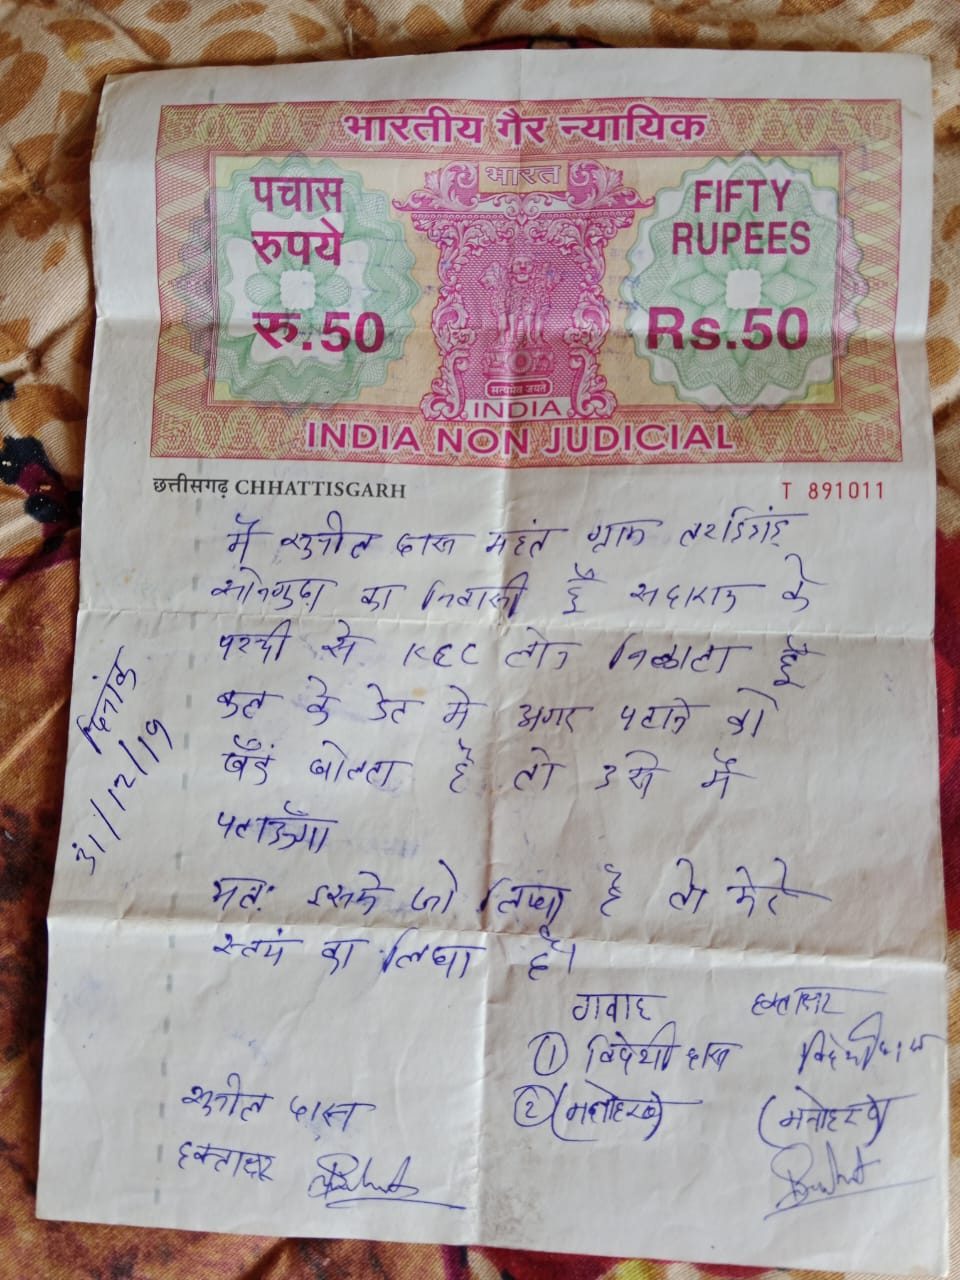 भारतीय गैर न्यायिक
भारत
पचास
रुपये
रु.50
FIFTY
RUPEES
Rs.50
सत्यमेव जयते
INDIA
INDIA NON JUDICIAL
छत्तीसगढ़ CHHATTISGARH
T 891011
में सुनील दास महंत ग्राम
सोनगुढ़ा का निवासी हूँ सदाराम के
परची से KCC लोन निकाला हूँ
कल के डेट मे अगर पटाने को
बैंक बोलता है तो उसे मैं
पटाऊँगा
अतः इसमे जो लिखा है वो मेरे
स्वयं का लिखा है।
दिनांक
31/12/19
गवाह हस्ताक्षर
① विदेशी दास विदेशी दास
②
सुनील दास
हस्ताक्षर